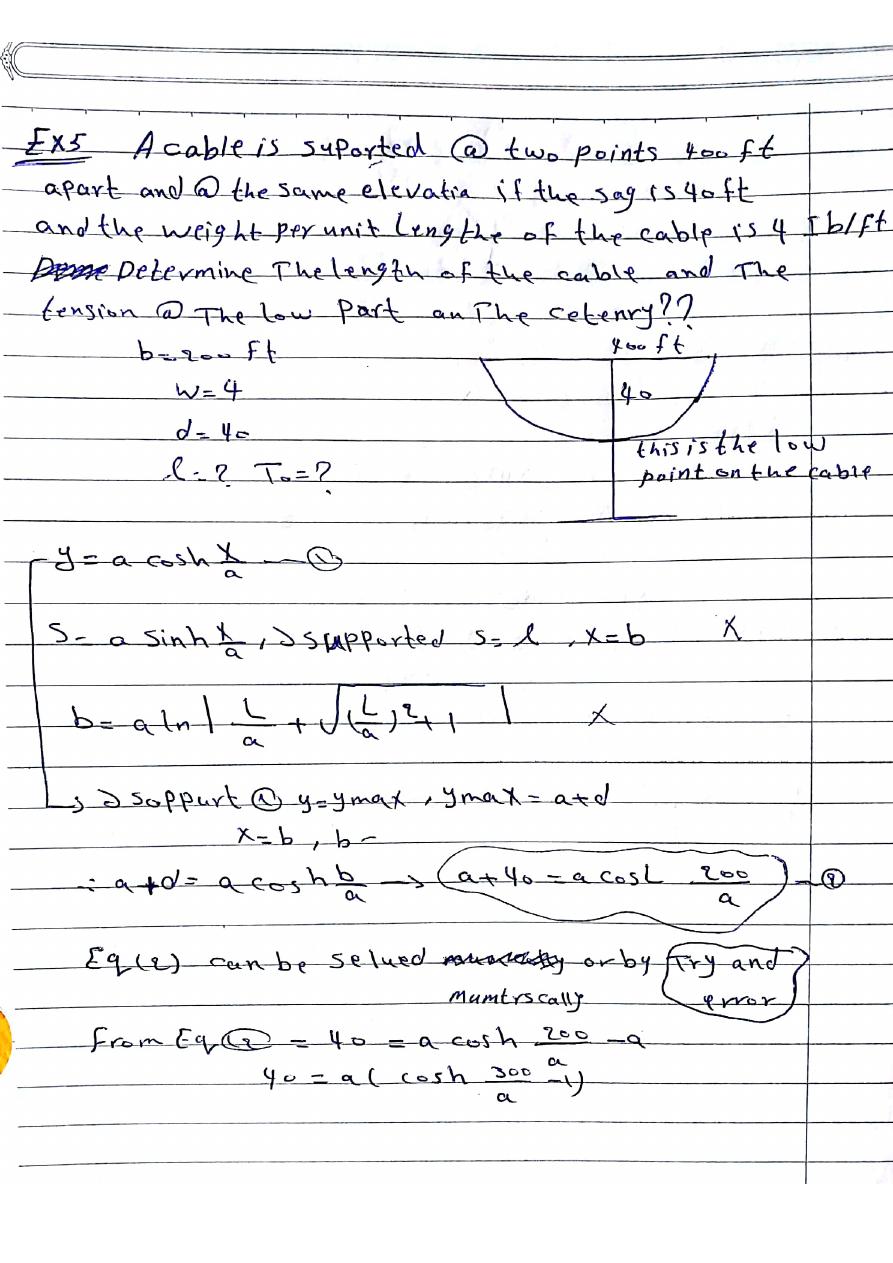 EX5 A cable is suported @ two points 400 ft
apart and @ the same elevatia if the sag is 40 ft
and the weight per unit Lengthe of the cable is 4 Ib/ft
Determine The length of the cable and The
tension @ The low Part an The cetenry??
b = 200 ft
400 ft
w = 4
40
d = 40
this is the low
l = ? T₀ = ?
point on the cable
y = a cosh x/a — ①
S = a sinh x/a , supported s = l , x = b X
b = a ln | L/a + √((L/a)² + 1) | X
soppurt @ y = ymax , ymax = a+d
x = b , b =
∴ a+d = a cosh b/a → a+40 = a cosh 200/a — ②
Eq (2) can be selued or by Try and
Mumtrscally error
from Eq ② = 40 = a cosh 200/a - a
40 = a ( cosh 300/a - 1)